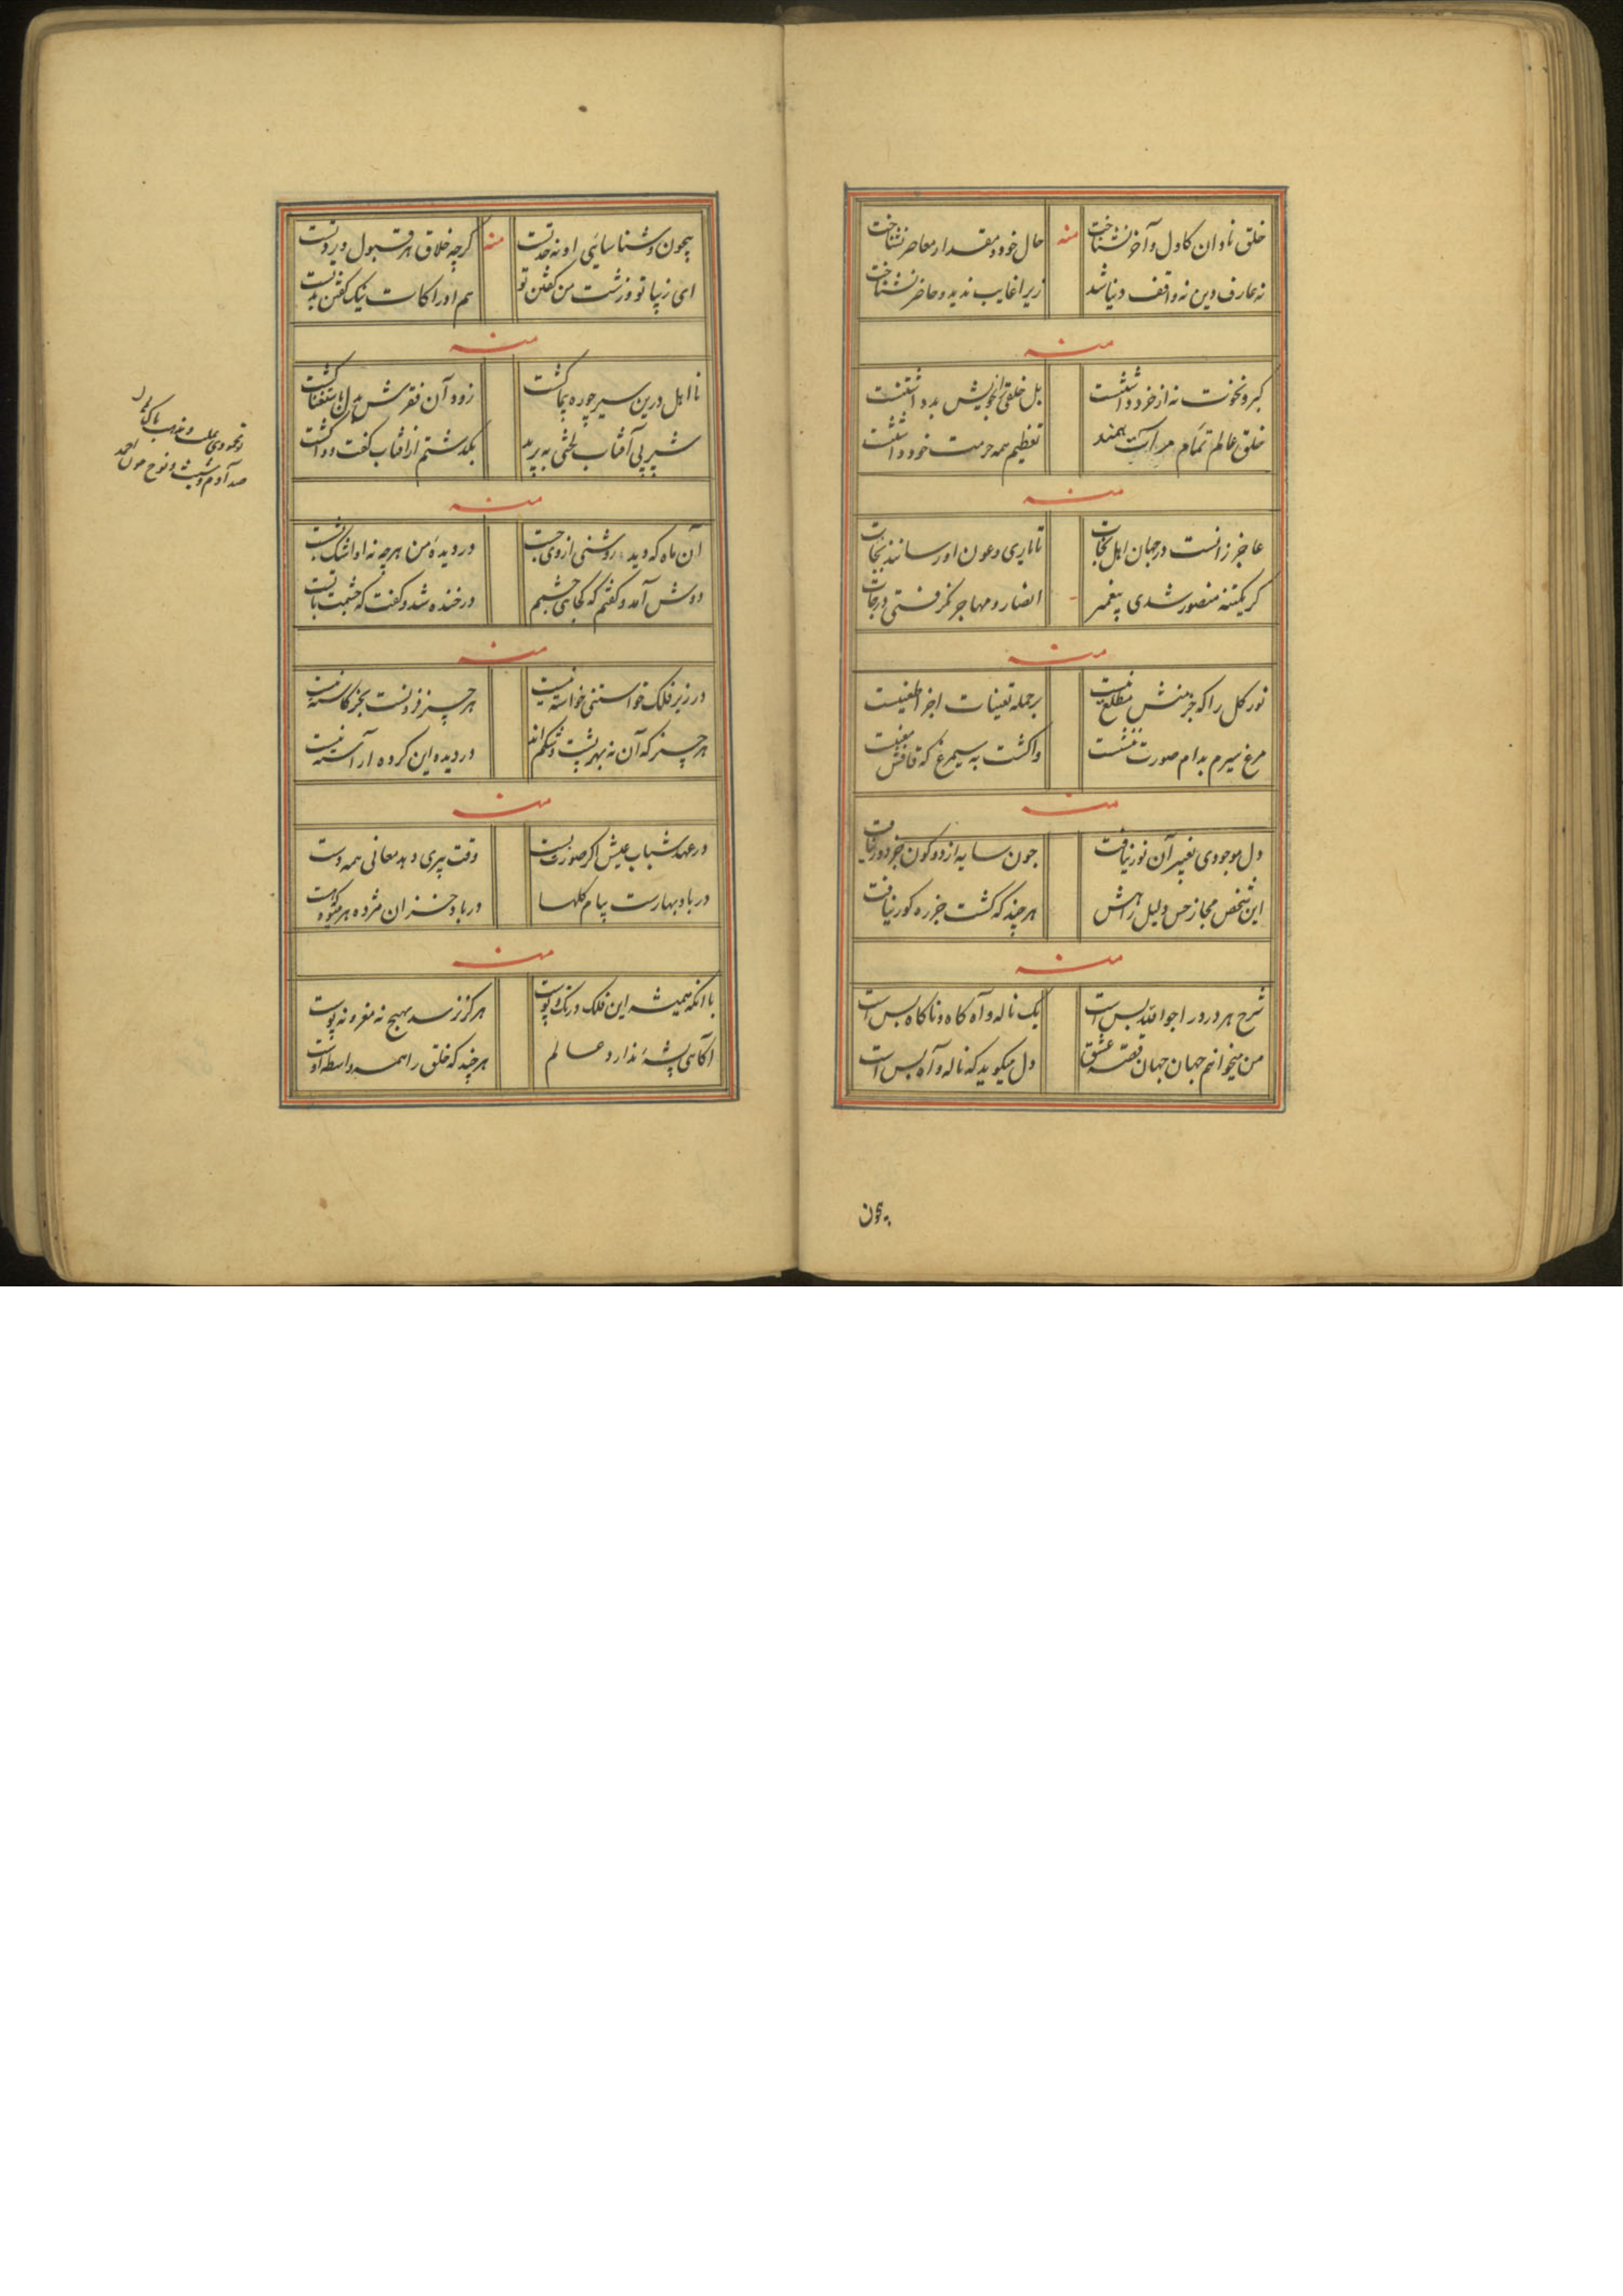 خلق نادان کاول و آخر نشناخت منه حال خود و مقدار معاصر نشناخت
نه عارف دین نه واقف دنیا شد زیرا غایب ندید و حاضر نشناخت
منه
کبر و نخوت نه از خرد داشتنست بل خلقی را بخویش بد داشتنست
خلق عالم تمام مرآت همند تعظیم همه حرمت خود داشتنست
منه
عاجز زانست در جهان اهل نجات تا یاری و عون او رسانند نجات
گر یکتنه منصور شدی پیغمبر انصار و مهاجر نگرفتی درجات
منه
نور کل را که جز منش مطلع نیست بر جمله تعینات اجزا
مرغ سیرم بدام صورت ننشست واگشت به سیمرغ که قافش
منه
دل موجودی بغیر آن نور نیافت چون سایه از دو کون جز دور نیافت
این شخص مجاز حس دلیل راهش هر چند که گشت جز ره کور نیافت
منه
شرح هر درد را جوابیه بس است یک ناله و آه گاه و ناگاه بس است
من میخوانم جهان جهان قصه عشق دل میگوید که ناله و آه بس است
بیچون
بیچون و شناسائی او نه حد تست منه گرچه خلاق هر قبول و رد تست
ای زیبا تو و زشت من گفتن تو هم ادراکات نیک گفتن بد تست
منه
نااهل درین سیر چو ره پیما گشت زود آن فقرش بدل باستغنا گشت
شب پر پی آفتاب لختی به پرید بگذشتم از آفتاب گفت و واگشت
منه
آن ماه که دیده روشنی از وی جست در دیده من هر چه نه او اشک بشست
دوش آمد و گفتم که کجای چشمم در خنده شد و گفت که چشمت با تست
منه
در زیر فلک خواستنی خواسته نیست هر چیز فزونست بجز کاسته نیست
هر چیز که آن نه بهر پشت و شکم اند در دیده این گروه آراسته نیست
منه
در عهد شباب عیش اگر صورت بست وقت پیری دهد معانی همه دست
در باد بهارست پیام گلها در باد خزان مژده هر میوه که هست
منه
با آنکه همیشه این فلک در تک و پوست هرگز نرسد بهیچ نه مغز و نه پوست
آگاهی پشه ندارد عالم هر چند که خلق را همه واسطه اوست
صد آدم و شیث و نوح